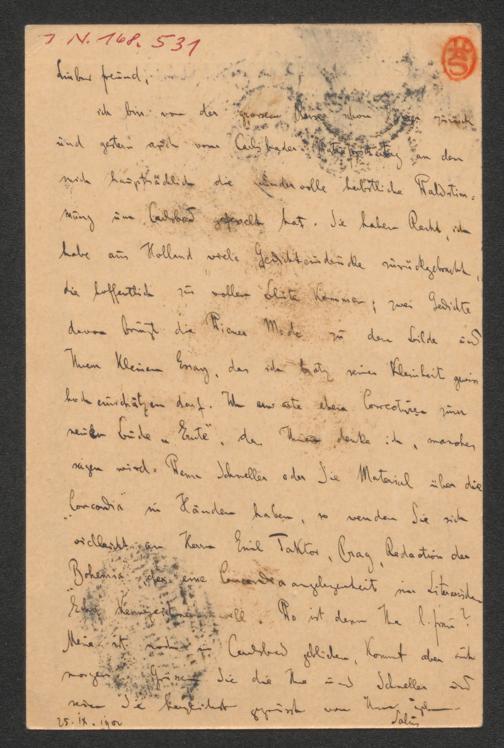 I N. 168.531
Lieber Freund,
ich bin von der grossen Reise schon zurück
und gestern auch vom Carlsbader an dem
mich hauptsächlich die wundervolle herbstliche Waldstim-
mung um Carlsbad gelockt hat. Sie haben Recht, ich
habe aus Holland viele Gedichteindrücke zurückgebracht,
die hoffentlich zur vollen Blüte kommen; zwei Gedichte
davon bringt die Wiener Mode zu dem Bilde und
Ihrem kleinen Essay, das ich trotz seiner Kleinheit gewiss
hoch einschätzen darf. Ich erwarte eben Correcturen zum
neuen Buche „Ernte", das Ihnen denke ich, manches
sagen wird. Wenn Schneller oder Sie Material über die
„Concordia" in Händen haben, so wenden Sie sich
vielleicht an Herrn Emil Faktor, Prag, Redaction der
Bohemia, der eine Concordiaangelegenheit im Literarischen
Echo will. Wo ist denn Ihre l. Frau?
Meine ist noch in Carlsbad geblieben, kommt aber
morgen. Grüssen Sie die Ihre und Schneller und
seien Sie herzlichst gegrüsst von Ihrem
Salus
25. IX. 1902